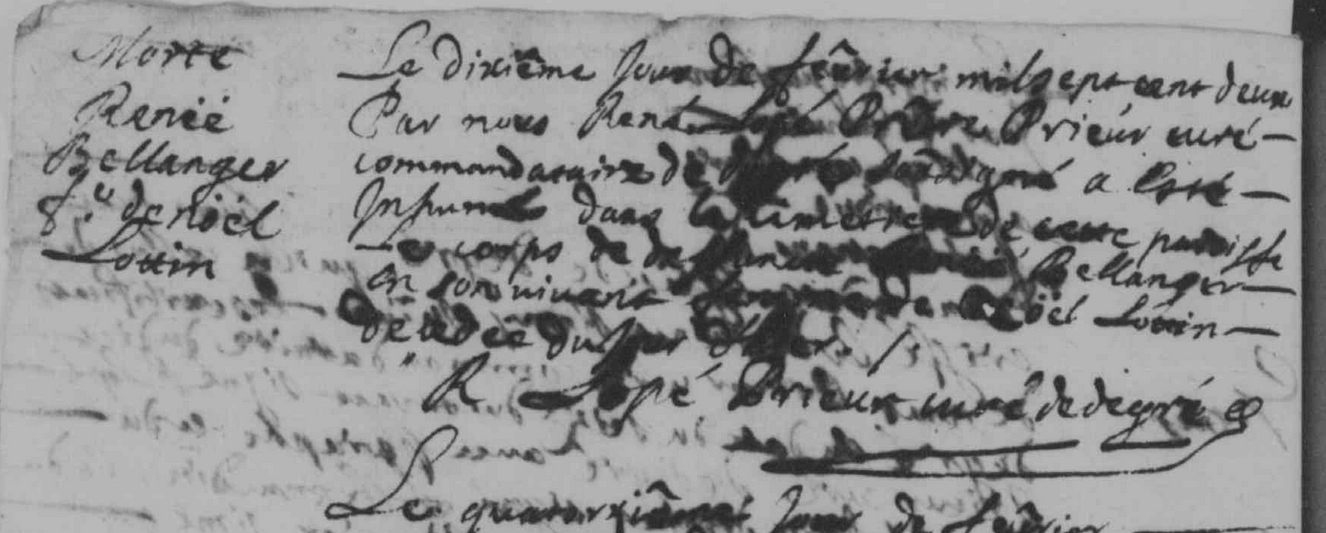 Morte
Renée
Bellanger
f.e de noël
Lottin
Le dixiême Jour de feûrier mil sept cent deux
Par nous René Prêtre Prieur curé
commandataire de a Esté
Inhumé dans le cimetiere de cette paroisse
Le corps de deffuncte Renée Bellanger
en son vivant femme de noël Lottin
decedée du Jour d'hier
R Prieur curé de degré
Le quatorziême Jour de feûrier